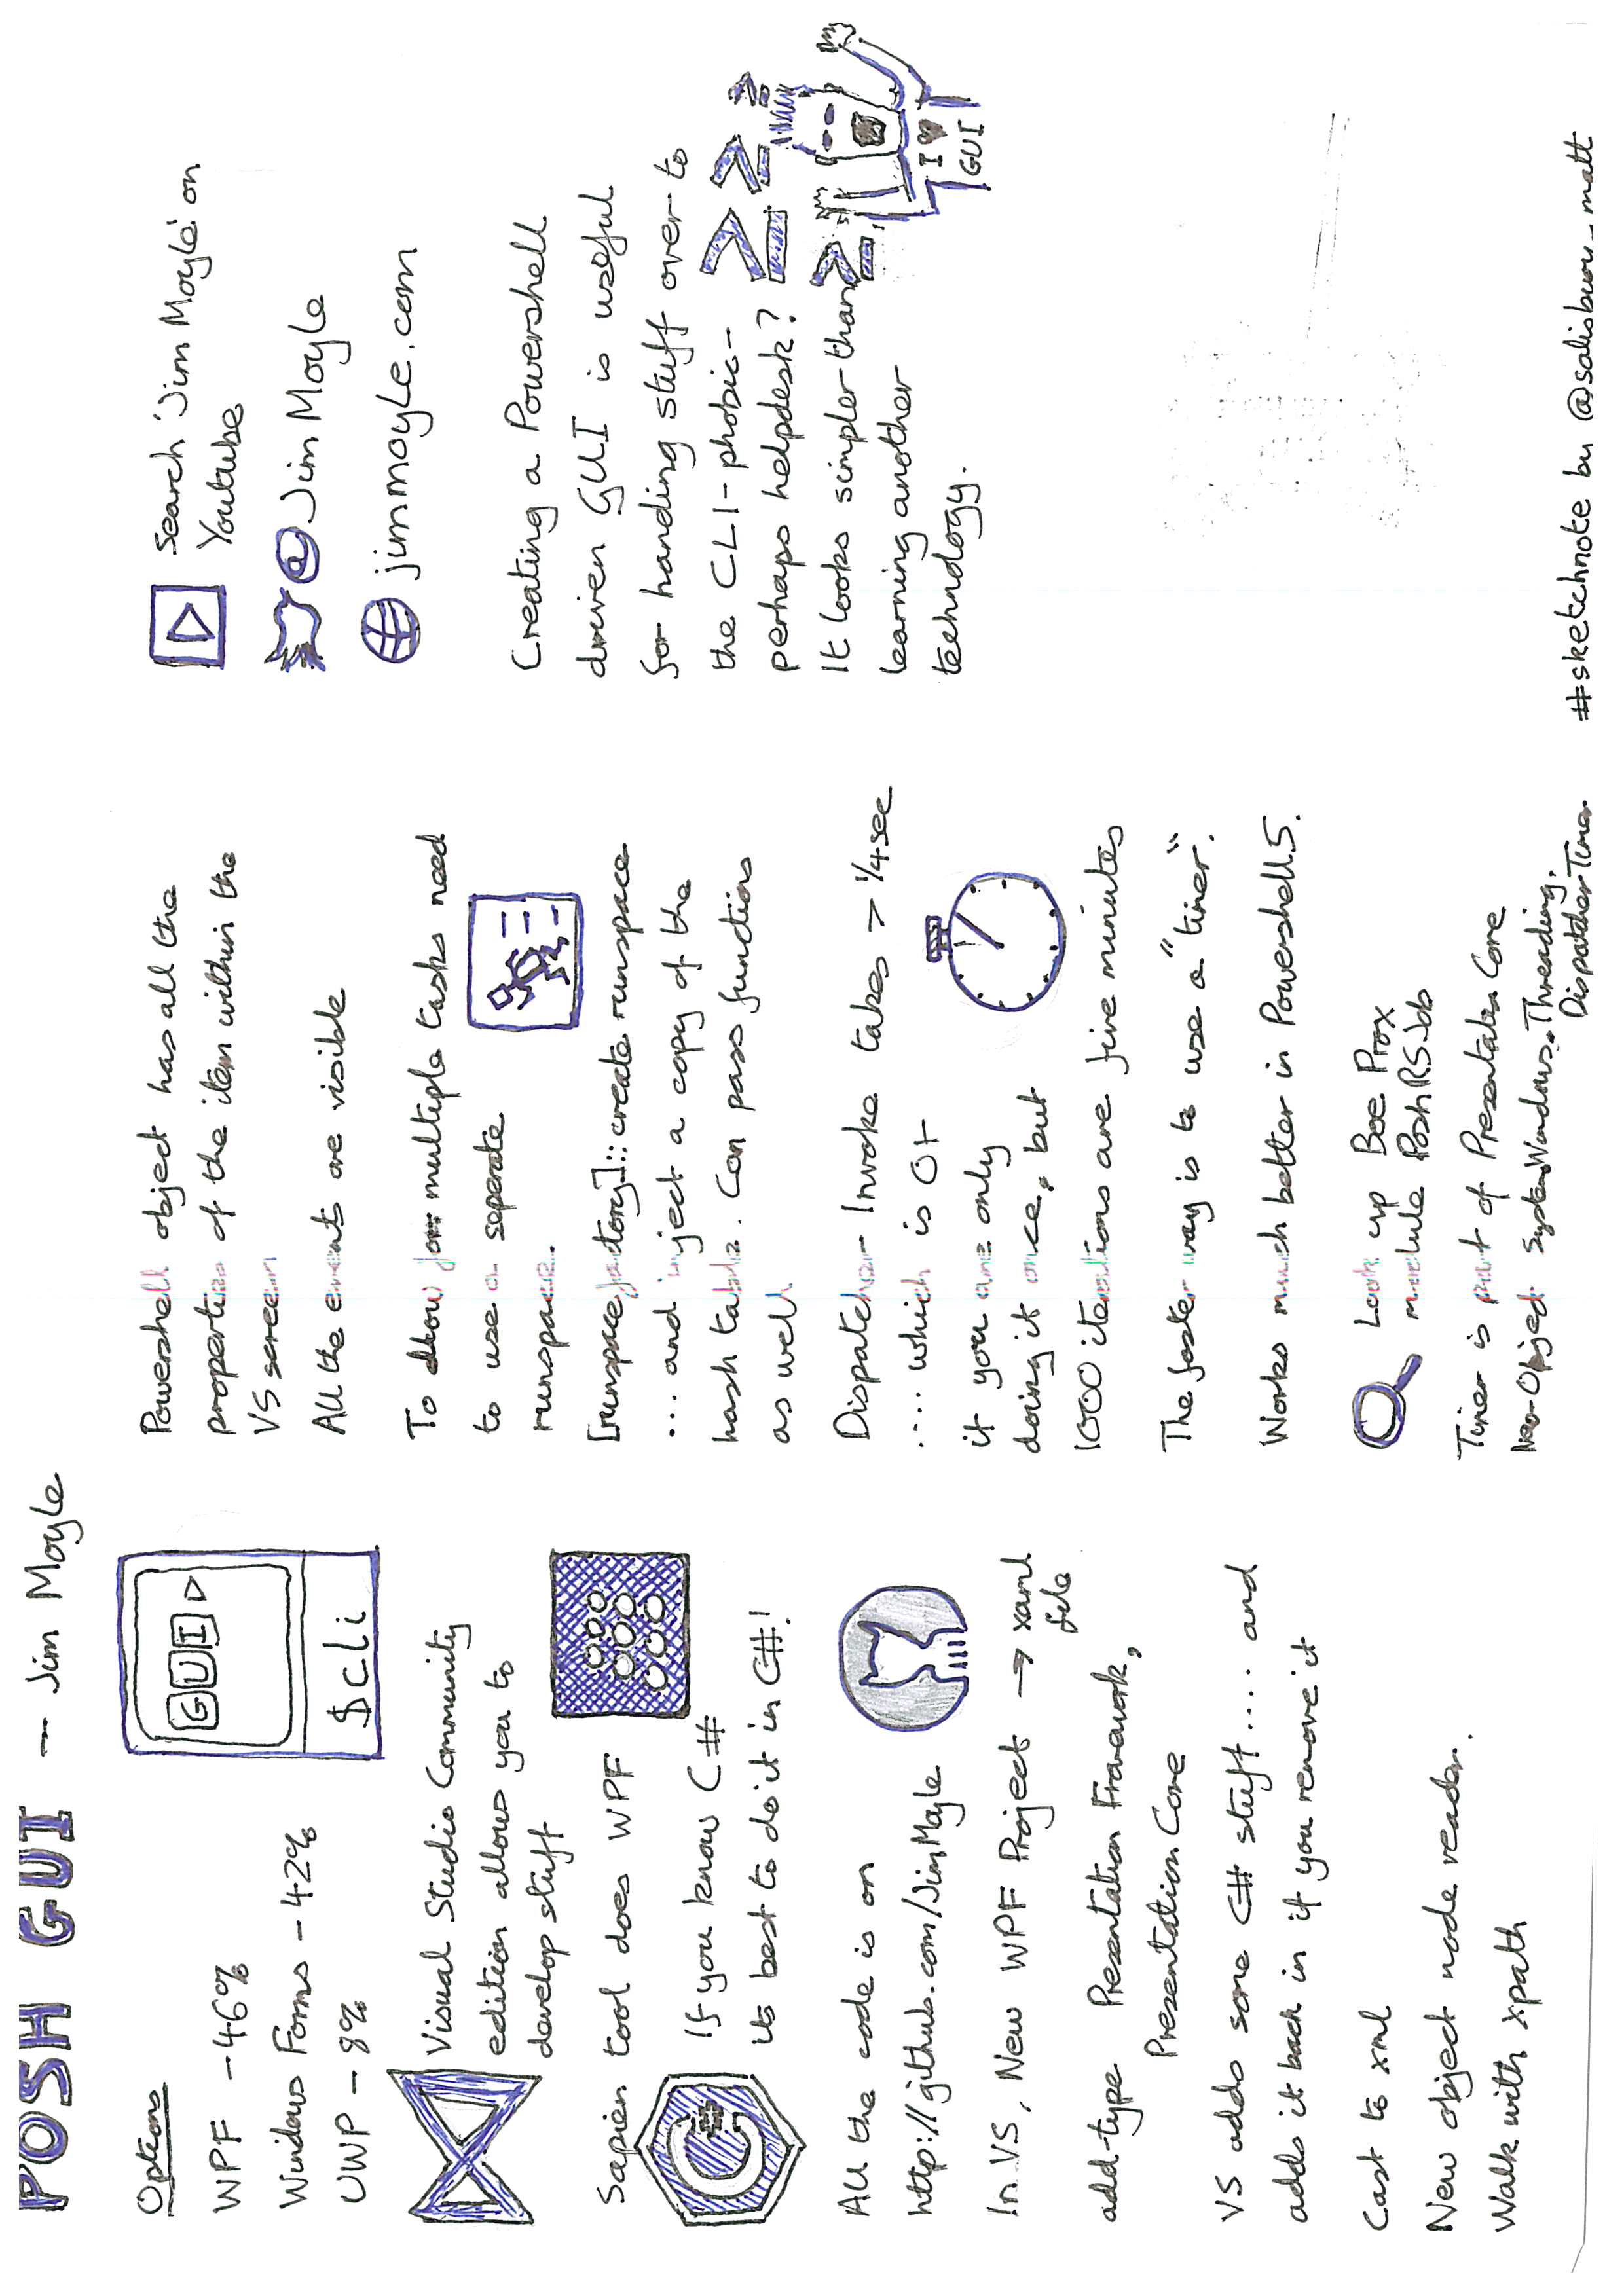 POSH GUI — Jim Moyle
Options
WPF - 46%
Windows Forms - 42%
UWP - 8%
GUI
$cli
Visual Studio Community
edition allows you to
develop stuff
Sapien tool does WPF
C#
If you know C#
its best to do it in C#!
All the code is on
http://github.com/JimMoyle
In VS, New WPF Project → xaml
file
add-type Presentation Framework,
Presentation Core
VS adds some C# stuff.... and
adds it back in if you remove it
Cast to xml
New object node reader.
Walk with xpath
Powershell object has all the
properties of the item within the
VS screen
All the events are visible
To allow for multiple tasks need
to use a seperate
runspace.
[runspacefactory]::create runspace
... and inject a copy of the
hash table. Can pass functions
as well
Dispatcher Invoke takes > 1/4 sec
.... which is OK
if you are only
doing it once, but
1000 iterations are five minutes
The faster way is to use a "timer".
Works much better in Powershell 5.
Look up Boe Prox
module PoshRSJob
Timer is part of Presentation Core
New-Object System.Windows.Threading.
DispatcherTimer
Search 'Jim Moyle' on
Youtube
@JimMoyle
jimmoyle.com
Creating a Powershell
driven GUI is useful
for handing stuff over to
the CLI-phobic-
perhaps helpdesk?
It looks simpler than
learning another
technology.
I ♥
GUI
#sketchnote by @salisbury_matt